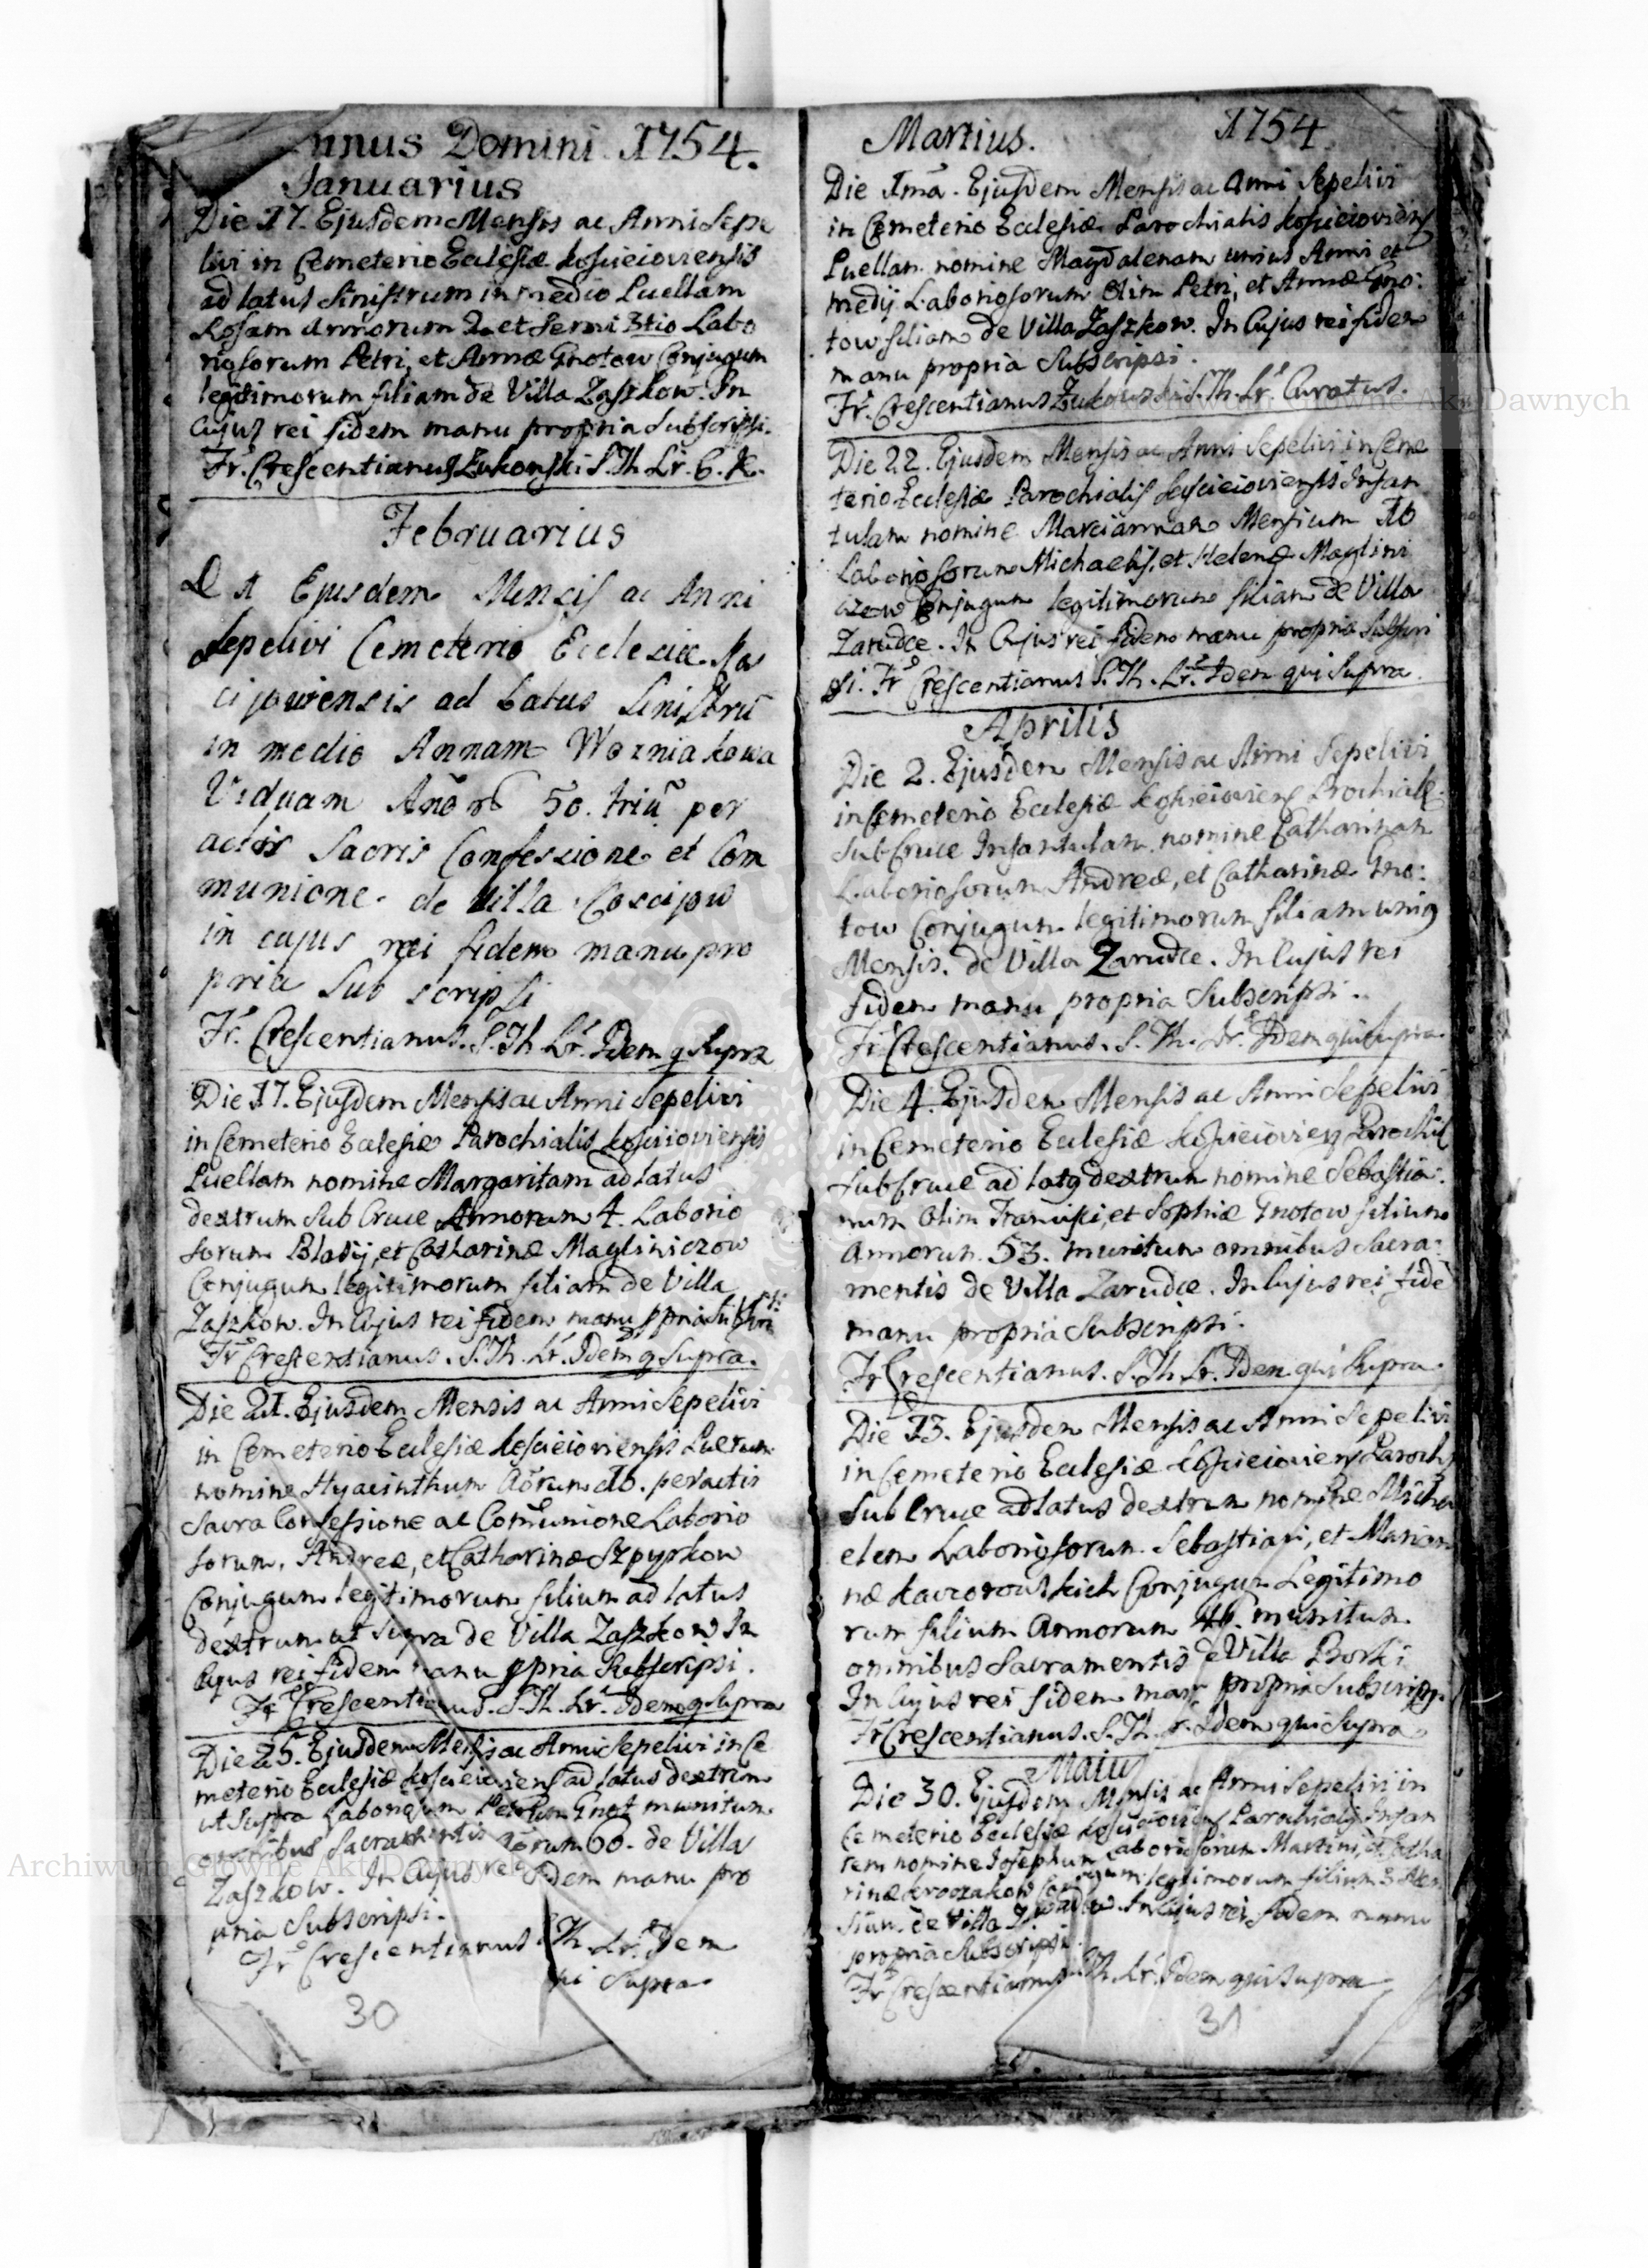 nnus Domini 1754.
Januarius
Die 17. Ejusdem Mensis ac Anni Sepe
livi in Cemeterio Ecclesiæ Kosciejoviensis
ad latus Sinistrum in medio Puellam
Rosam Annorum 2. et Semi 3tio Labo
riosorum Petri, et Annæ Gnotow Conjugum
legitimorum filiam de Villa Zaszkow. In
Cujus rei fidem manu propria Subscripsi.
Fr. Crescentianus Zukowski S. Th. Lr. C. K.
Februarius
D 1 Ejusdem Mencis ac Anni
Sepelivi Cemeterio Ecclesiæ Kos
cijoviensis ad Latus Sinistrũ
in medio Annam Wozniakowa
Viduam 50. triũ per
actis Sacris Confescione et Com
munione de Villa Coscijow
in cujus rei fidem manu pro
pria Sub scripsi
Fr. Crescentianus. S. Th. Lr. Idem q Supra
Die 17. Ejusdem Mensis ac Anni Sepelivi
in Cemeterio Ecclesiæ Parochialis Kosciioviensis
Puellam nomine Margaritam ad latus
dextrum Sub Cruce Annorum 4. Laborio
sorum Blasij, et Catharinæ Magliniczow
Conjugum legitimorum filiam de Villa
Zaszkow. In Cujus rei fidem manu ppria Subscri
psi.
Fr. Crescentianus. S. Th. Lr. Idem q Supra.
Die 21. Ejusdem Mensis ac Anni Sepelivi
in Cemeterio Ecclesiæ Koscieioviensis Puerum
nomine Hyacinthum Aõrum 10. peractis
Sacra Confessione ac Com̃unione Laborio
sorum, Andreæ, et Catharinæ Szpyrkow
Conjugum legitimorum filium ad latus
dextrum ut Supra de Villa Zaszkow In
Cujus rei fidem manu ppria Subscripsi.
Fr. Crescentianus. S. Th. Lr. Idem q Supra
Die 25. Ejusdem Mensis ac Anni Sepelivi in Ce
meterio Ecclesiæ ad latus dextrum
ut Supra Petrum Gnot munitum
omnibus Sacramentis aõrum 60. de Villa
Zaszkow. In Cujus rei fidem manu pro
pria Subscripsi.
Fr. Crescentianus S. Th. Lr. Idem
qui Supra.
30
Martius. 1754
Die 1mã. Ejusdem Mensis ac Anni Sepelivi
in Cemeterio Ecclesiæ Parochialis Koscieioviens
Puellam nomine Magdalenam unius Anni et
medij Laboriosorum Olim Petri, et Annæ Gno:
tow filiam de Villa Zaszkow. In Cujus rei fidem
manu propria Subscripsi.
Fr. Crescentianus Zukowski S. Th. Lr. Curatus.
Die 22. Ejusdem Mensis ac Anni Sepelivi in Ceme
terio Ecclesiæ Parochialis Koscieioviensis Infan
tulam nomine Mariannam Mensium 10
Laboriosorum Michaelis, et Helenæ Maglini
czow Conjugum legitimorum filiam de Villa
Zarudce. In Cujus rei fidem manu propria Subscri
psi. Fr Crescentianus S. Th. Lr. Idem qui Supra.
Aprilis
Die 2. Ejusdem Mensis ac Anni Sepelivi
in Cemeterio Ecclesiæ Koscieioviens Prochialis
Sub Cruce Infantulam nomine Catharinam
Laboriosorum Andreæ, et Catharinæ Gno:
tow Conjugum legitimorum filiam unig
Mensis. de Villa Zarudce. In Cujus rei
fidem manu propria Subscripsi.
Fr. Crescentianus. S. Th. Lr. Idem qui Supra
Die 4. Ejusdem Mensis ac Anni Sepelivi
in Cemeterio Ecclesiæ Koscieioviens Parochial
Sub Cruce ad latg dextrum nomine Sebastia:
num Olim Francisci, et Sophiæ Gnotow filium
Annorum. 53. munitum omnibus Sacra:
mentis de Villa Zarudce. In Cujus rei fidẽ
manu propria Subscripsi.
Fr Crescentianus. S. Th. Lr. Idem qui Supra.
Die 13. Ejusdem Mensis ac Anni Sepelivi
in Cemeterio Ecclesiæ Koscieioviens Paroch
Sub Cruce ad latus dextrum nomine Micha
elem Laboriosorum. Sebastiani, et Marian
næ Kaczorowskich Conjugum Legitimo
rum filium Annorum munitum
omnibus Sacramentis de Villa Borki
In Cujus rei fidem manu propria Subscripsi.
Fr Crescentianus. S. Th. Lr. Idem qui Supra.
Maius
Die 30. Ejusdem Mensis ac Anni Sepelivi in
Cemeterio Ecclesiæ Koscieioviens Parochialis Infan
tem nomine Josephum Laboriosorum Martini, et Catha
rinæ Conjugum legitimorum filium 3 Men
sium. de Villa In Cujus rei fidem manu
propria Subscripsi.
Fr Crescentianus S. Th. Lr. Idem qui Supra
31
Archiwum Główne Akt Dawnych
Archiwum Główne Akt Dawnych